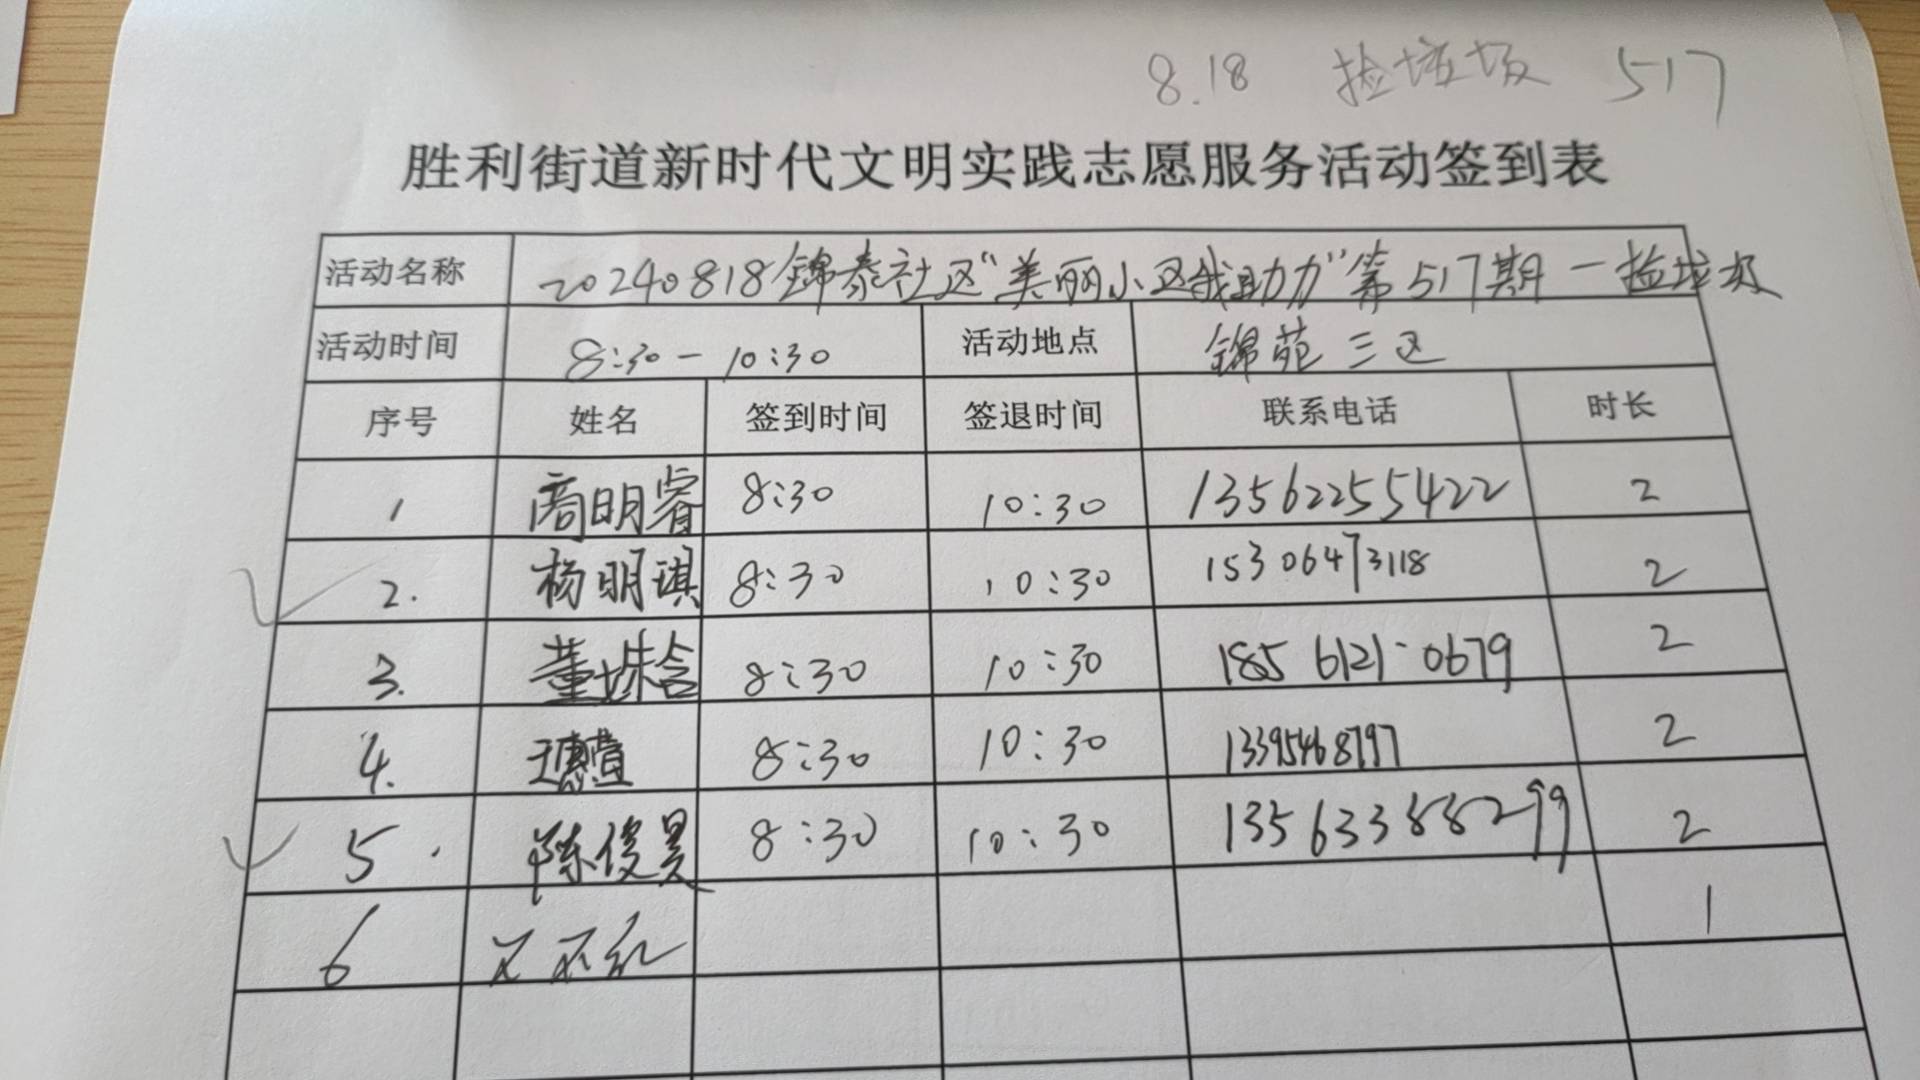 8.18 捡垃圾 517
胜利街道新时代文明实践志愿服务活动签到表
活动名称 20240818锦泰社区“美丽小区我助力”第517期一捡垃圾
活动时间 8:30-10:30 活动地点 锦苑三区
序号 姓名 签到时间 签退时间 联系电话 时长
1 商明睿 8:30 10:30 13562255422 2
2. 杨明琪 8:30 10:30 15306473118 2
3. 董姝含 8:30 10:30 1856121-0679 2
4. 8:30 10:30 13395468797 2
5. 陈俊昊 8:30 10:30 13563388299 2
6 1